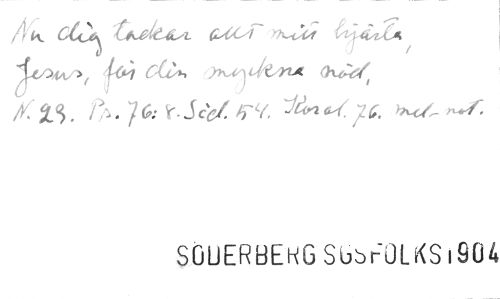 Nu dig tackar allt mitt hjärta,
Jesus, för din myckna nöd,
N. 29. Ps. 76:8. Sid. 54. Koral. 76. mel-not.
SÖDERBERG SGSFOLKS1904